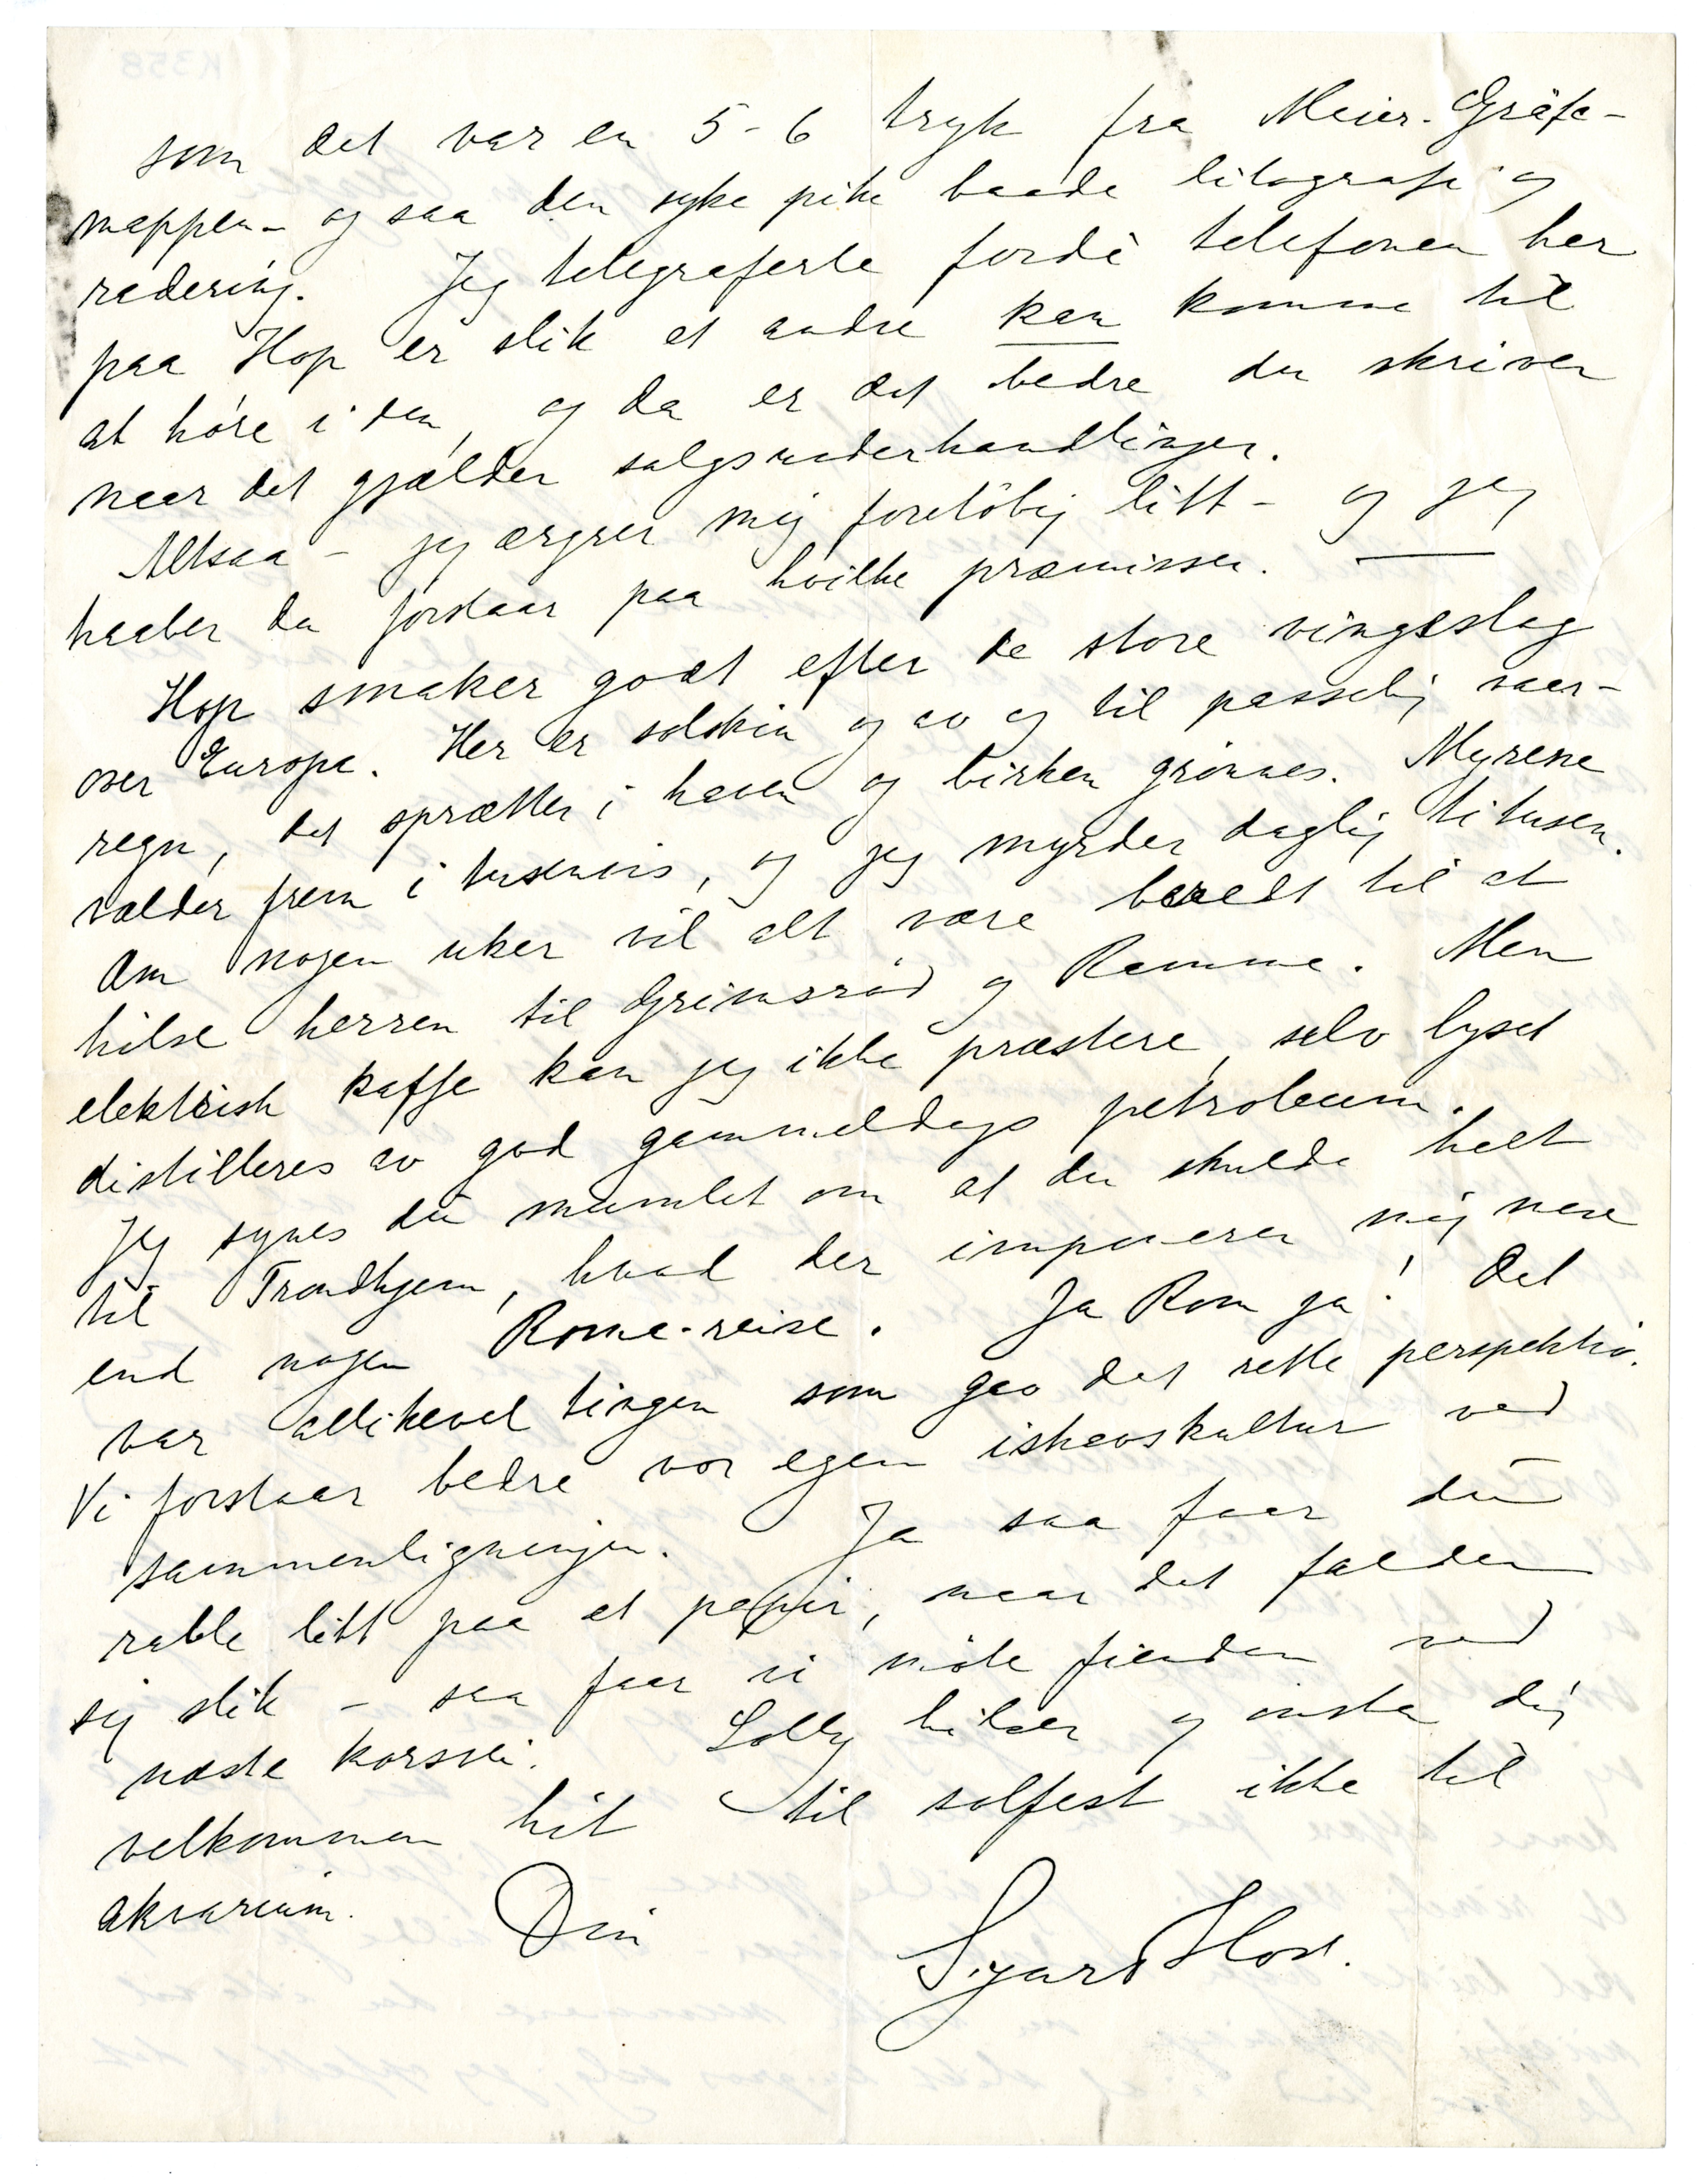 som det var en 5-6 tryk fra Meier-Gräfe-
mappen - og saa den syke pike baade litografi og
radering. Jeg telegraferte fordi telefonen her
paa Hop er slik at andre kan komme til
at høre i den, og da er det bedre du skriver
naar det gjælder salgsunderhandlinger.
Altsaa - jeg ærgrer mig foreløbig litt - og jeg
haaber du forstaar paa hvilke præmisser.
Hop smaker godt efter de store vingeslag
over Europa. Her er solskin og av og til passelig vaar-
regn, det sprætter i haven og birken grønnes. Myrene
vælder frem i tusenvis, og jeg myrder daglig titusen.
Om nogen uker vil alt være beredt til at
hilse herren til Grimsrød og Ramme. Men
elektrisk kaffe kan jeg ikke præstere, selv lyset
distilleres av god gammeldags petroleum.
Jeg synes du mumlet om at du skulde helt
til Trondhjem, hvad der imponerer mig mere
end nogen Roma-reise. Ja Rom ja! Det
var allikevel tingen som gav det rette perspektiv.
Vi forstaar bedre vor egen ishavskultur ved
sammenligningen. Ja saa faar du
rable litt paa et papir, naar det falder
sig slik - saa faar vi møte fienden ved
næste korsvei. Lolly hilser og ønsker dig
velkommen hit til solfest ikke til
akvarium. Din
Sigurd Høst.
K358